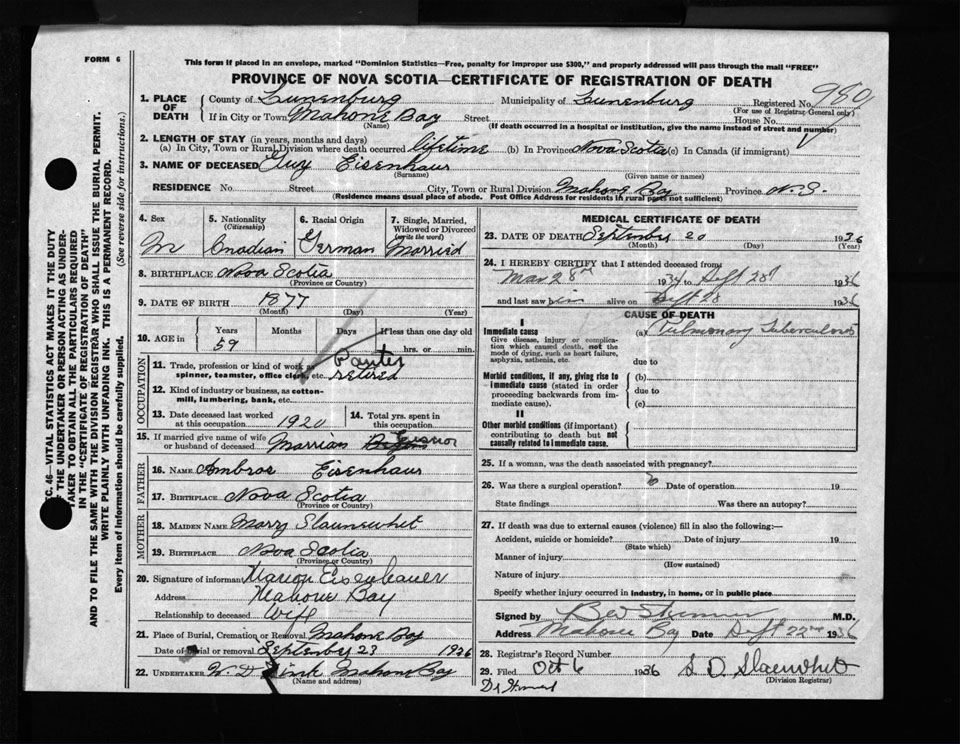 FORM 6
This form if placed in an envelope, marked "Dominion Statistics—Free, penalty for improper use $300," and properly addressed will pass through the mail "FREE"
PROVINCE OF NOVA SCOTIA—CERTIFICATE OF REGISTRATION OF DEATH
SEC. 46—VITAL STATISTICS ACT MAKES IT THE DUTY
OF THE UNDERTAKER OR PERSON ACTING AS UNDER-
TAKER TO OBTAIN ALL THE PARTICULARS REQUIRED
IN THE "CERTIFICATE OF REGISTRATION OF DEATH"
AND TO FILE THE SAME WITH THE DIVISION REGISTRAR WHO SHALL ISSUE THE BURIAL PERMIT.
WRITE PLAINLY WITH UNFADING INK. THIS IS A PERMANENT RECORD.
Every item of Information should be carefully supplied. (See reverse side for instructions.)
1. PLACE OF DEATH County of Lunenburg Municipality of Lunenburg Registered No. 980
(For use of Registrar General only)
If in City or Town Mahone Bay Street House No.
(Name) (If death occurred in a hospital or institution, give the name instead of street and number)
2. LENGTH OF STAY (in years, months and days)
(a) In City, Town or Rural Division where death occurred lifetime (b) In Province Nova Scotia (c) In Canada (if immigrant)
3. NAME OF DECEASED Guy Eisenhaur
(Surname) (Given name or names)
RESIDENCE No. Street City, Town or Rural Division Mahone Bay Province N. S.
(Residence means usual place of abode. Post Office Address for residents in rural parts not sufficient)
4. Sex M
5. Nationality (Citizenship) Cnadian
6. Racial Origin German
7. Single, Married, Widowed or Divorced (write the word) Married
8. BIRTHPLACE Nova Scotia
(Province or Country)
9. DATE OF BIRTH 1877
(Month) (Day) (Year)
10. AGE in Years Months Days If less than one day old
59 hrs. or min.
OCCUPATION
11. Trade, profession or kind of work as spinner, teamster, office clerk, etc. retired
12. Kind of industry or business, as cotton-mill, lumbering, bank, etc.
13. Date deceased last worked at this occupation 1920
14. Total yrs. spent in this occupation
15. If married give name of wife or husband of deceased Marrian
FATHER
16. NAME Ambros Eisenhaur
17. BIRTHPLACE Nova Scotia
(Province or Country)
MOTHER
18. MAIDEN NAME Mary Slaunwhit
19. BIRTHPLACE Nova Scotia
(Province or Country)
20. Signature of informant Marion Eisenhauer
Address Mahone Bay
Relationship to deceased Wiff
21. Place of Burial, Cremation or Removal Mahone Bay
Date of Burial or removal September 23 1936
22. UNDERTAKER Mahone Bay
(Name and address)
MEDICAL CERTIFICATE OF DEATH
23. DATE OF DEATH September 20 1936
(Month) (Day) (Year)
24. I HEREBY CERTIFY that I attended deceased from
Mar 28th 1934 to Sept 28th 1936
and last saw him alive on Sept 28 1936
CAUSE OF DEATH
I
Immediate cause (a) Pulmonary Tuberculosis
Give disease, injury or complication which caused death, not the mode of dying, such as heart failure, asphyxia, asthenia, etc.
due to
Morbid conditions, if any, giving rise to immediate cause (stated in order proceeding backwards from immediate cause).
(b)
due to
(c)
II
Other morbid conditions (if important) contributing to death but not causally related to immediate cause.
25. If a woman, was the death associated with pregnancy?
26. Was there a surgical operation? Date of operation 19
State findings Was there an autopsy?
27. If death was due to external causes (violence) fill in also the following:—
Accident, suicide or homicide? Date of injury 19
(State which)
Manner of injury
(How sustained)
Nature of injury
Specify whether injury occurred in industry, in home, or in public place
Signed by M.D.
Address Mahone Bay Date Sept 22nd 1936
28. Registrar's Record Number
29. Filed Oct 6 1936
(Division Registrar)